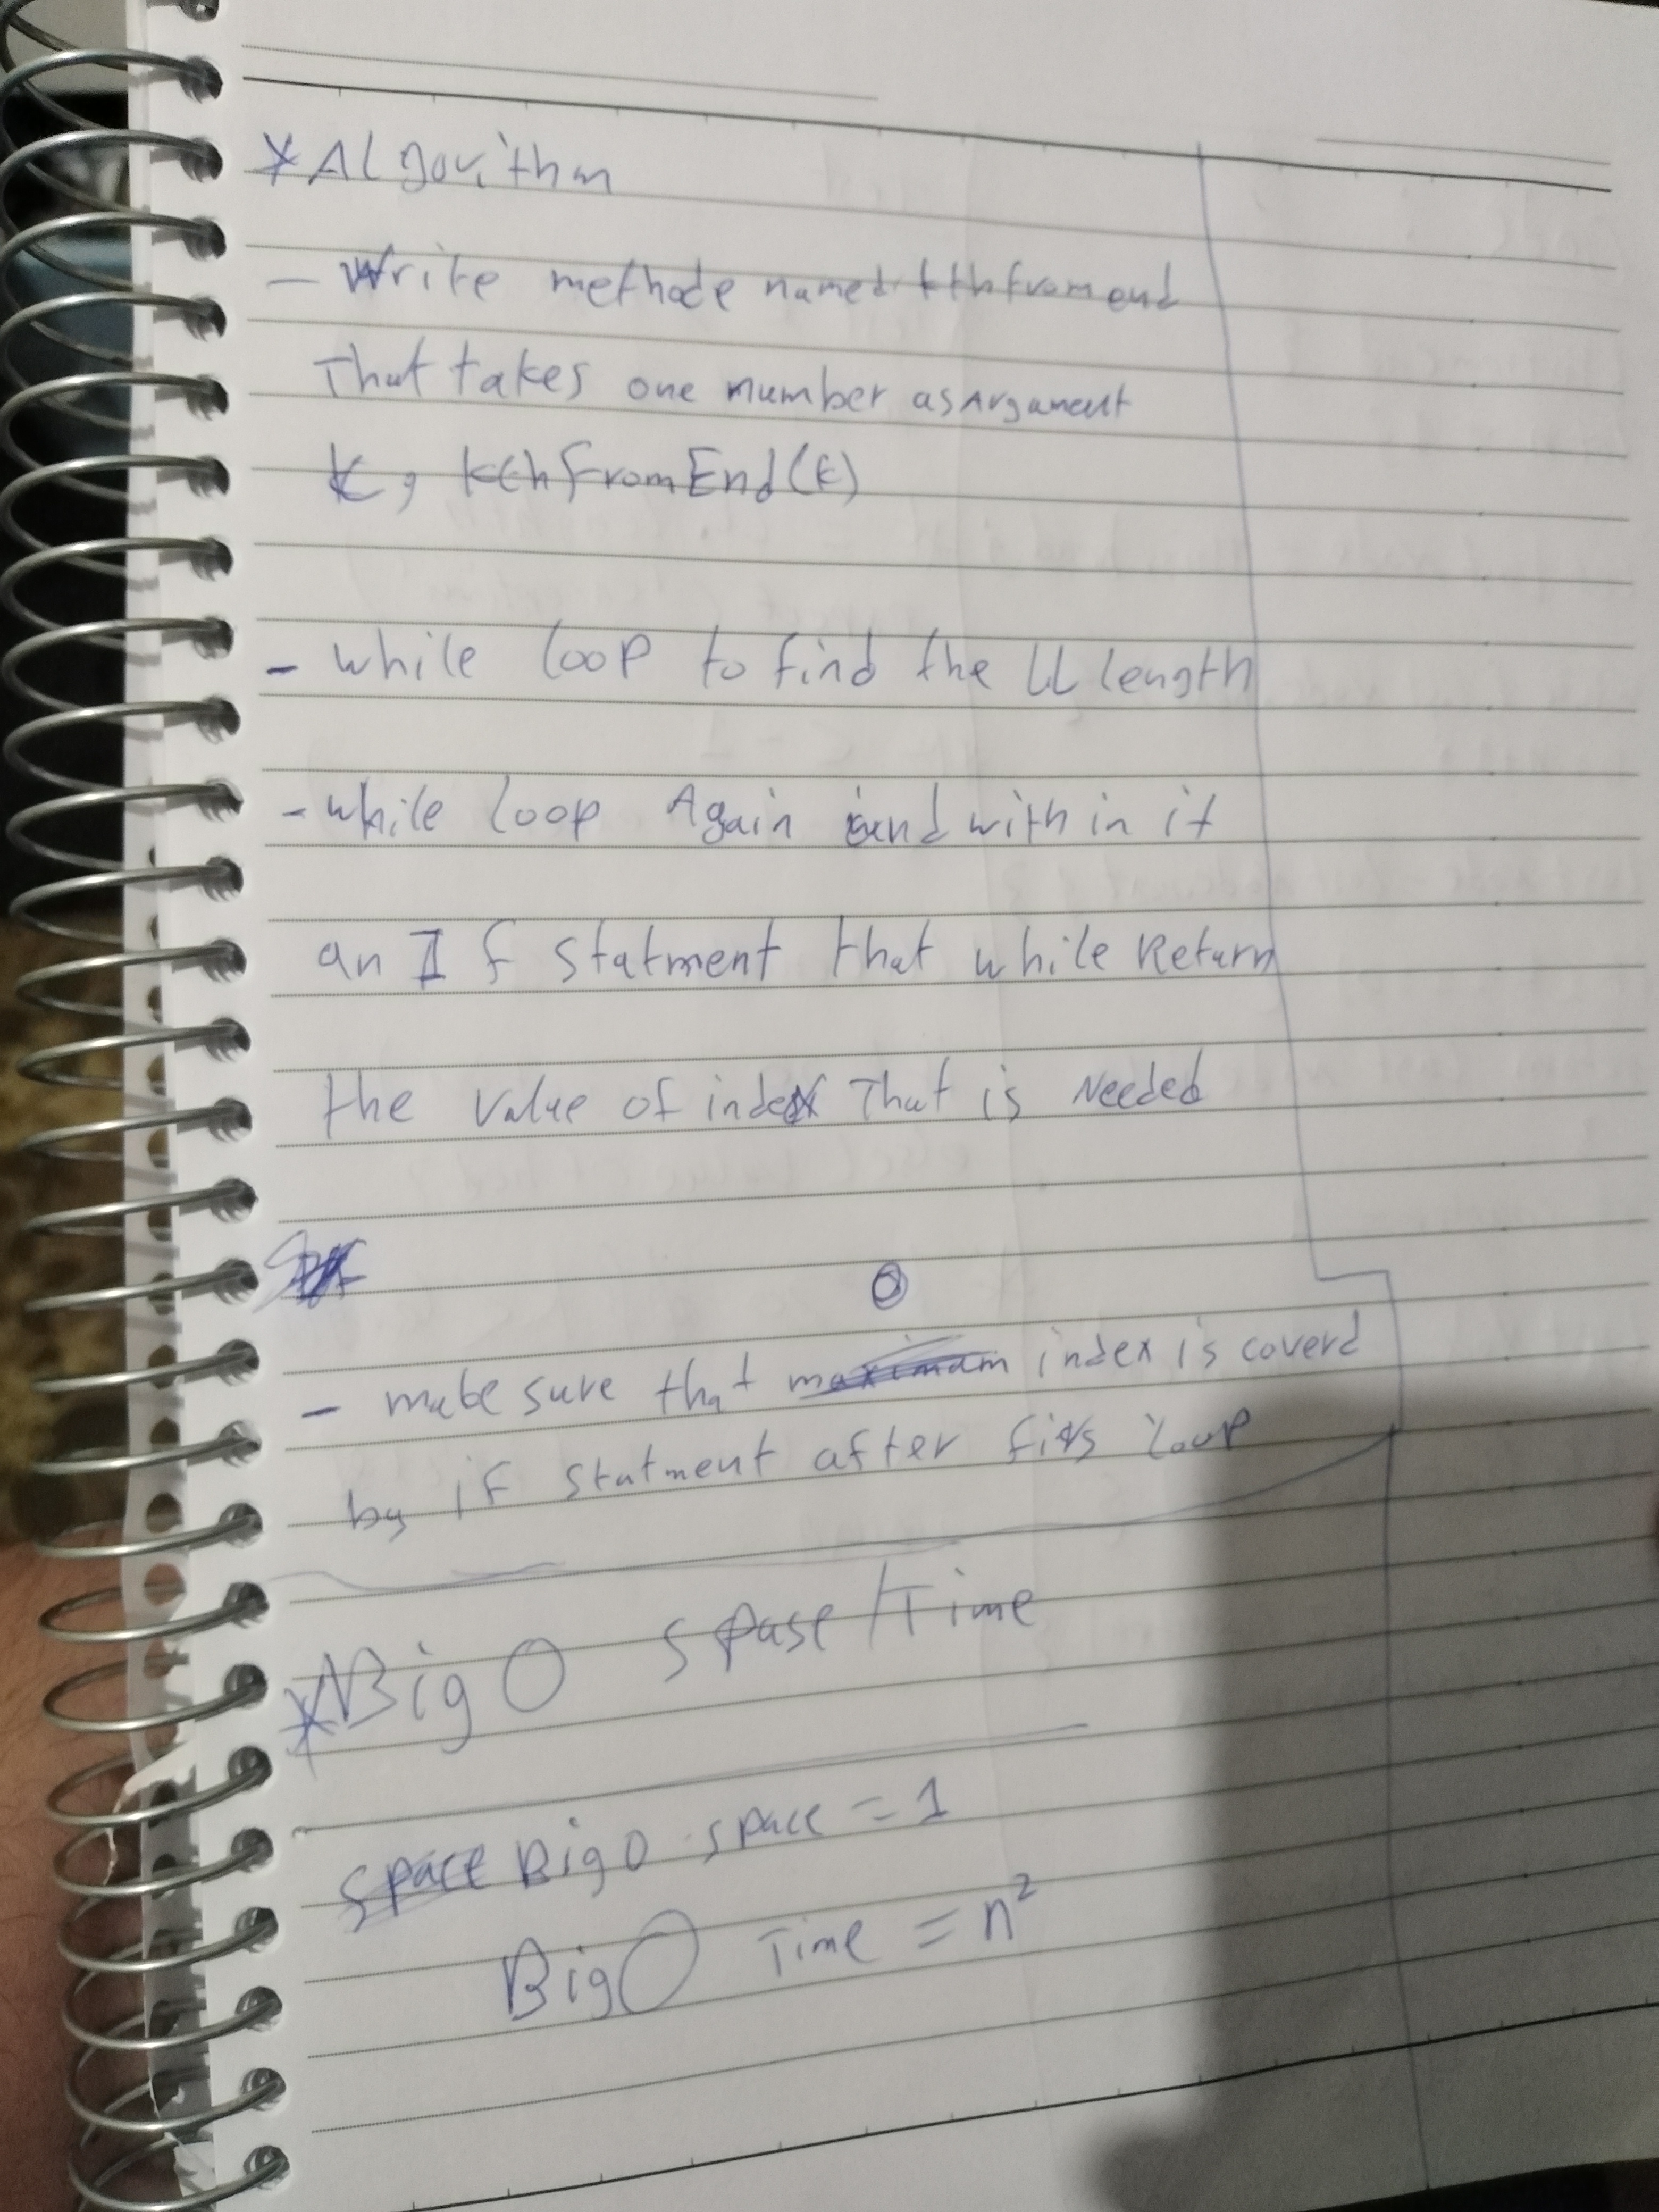 * Algorithm
- Write methode named kthfromend
That takes one number as Argument
K, kthfromEnd(k)
- while loop to find the LL length
- while loop Again and with in it
an If statment that while Return
the value of index That is Needed
0
- make sure that maximam index is coverd
by if statment after firs loop
* Big O spase/Time
space Big O space = 1
Big O Time = n²